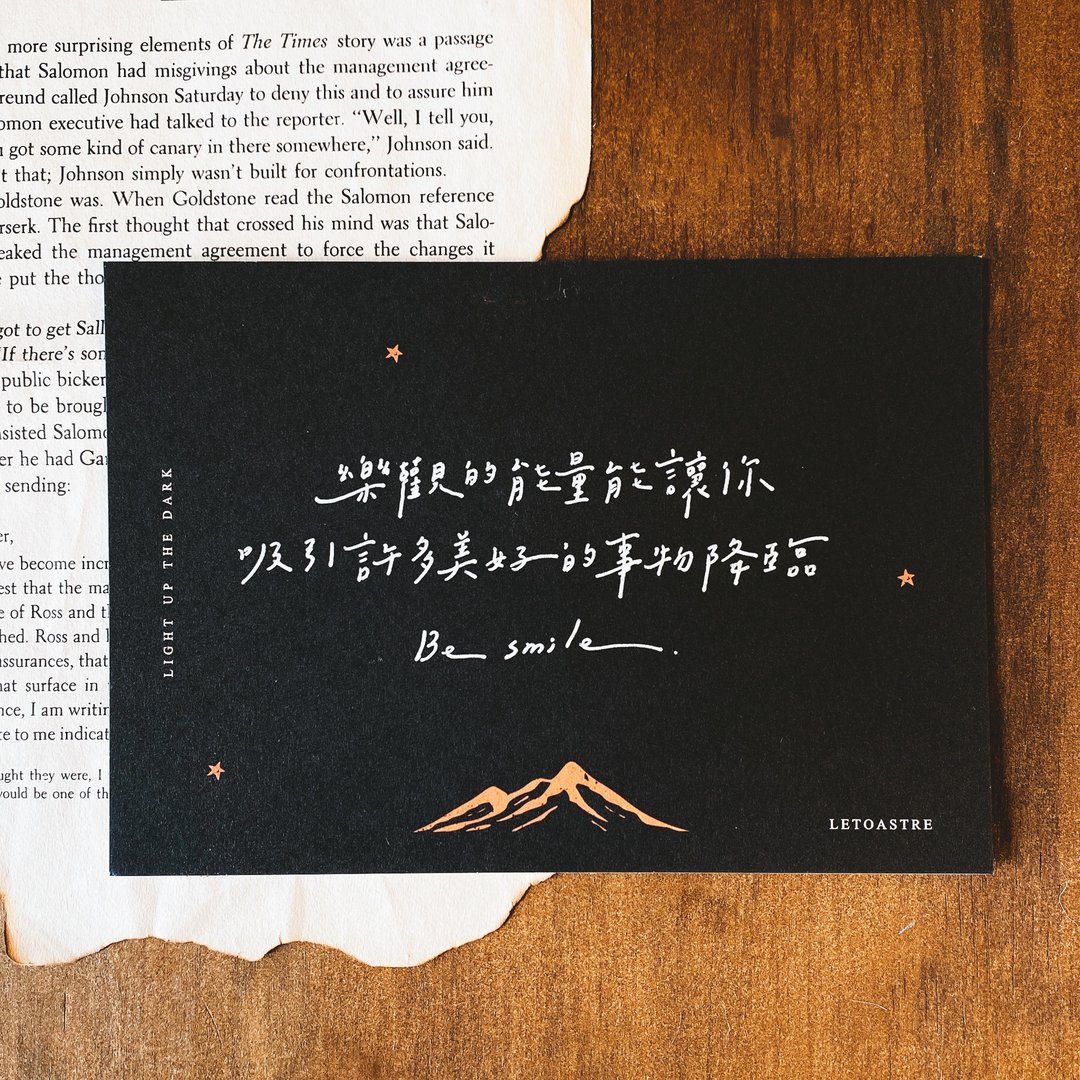 more surprising elements of The Times story was a passage
that Salomon had misgivings about the management agree-
reund called Johnson Saturday to deny this and to assure him
omon executive had talked to the reporter. “Well, I tell you,
u got some kind of canary in there somewhere,” Johnson said.
t that; Johnson simply wasn’t built for confrontations.
oldstone was. When Goldstone read the Salomon reference
rserk. The first thought that crossed his mind was that Salo-
eaked the management agreement to force the changes it
e put the tho
got to get Sall
“If there’s son
public bicker
to be brough
nsisted Salomo
er he had Gar
sending:
er,
ve become incr
est that the ma
e of Ross and th
hed. Ross and
assurances, that
hat surface in
nce, I am writin
te to me indicat
ught they were, I
would be one of th
LIGHT UP THE DARK
樂觀的能量能讓你
吸引許多美好的事物降臨
Be smile.
LETOASTRE